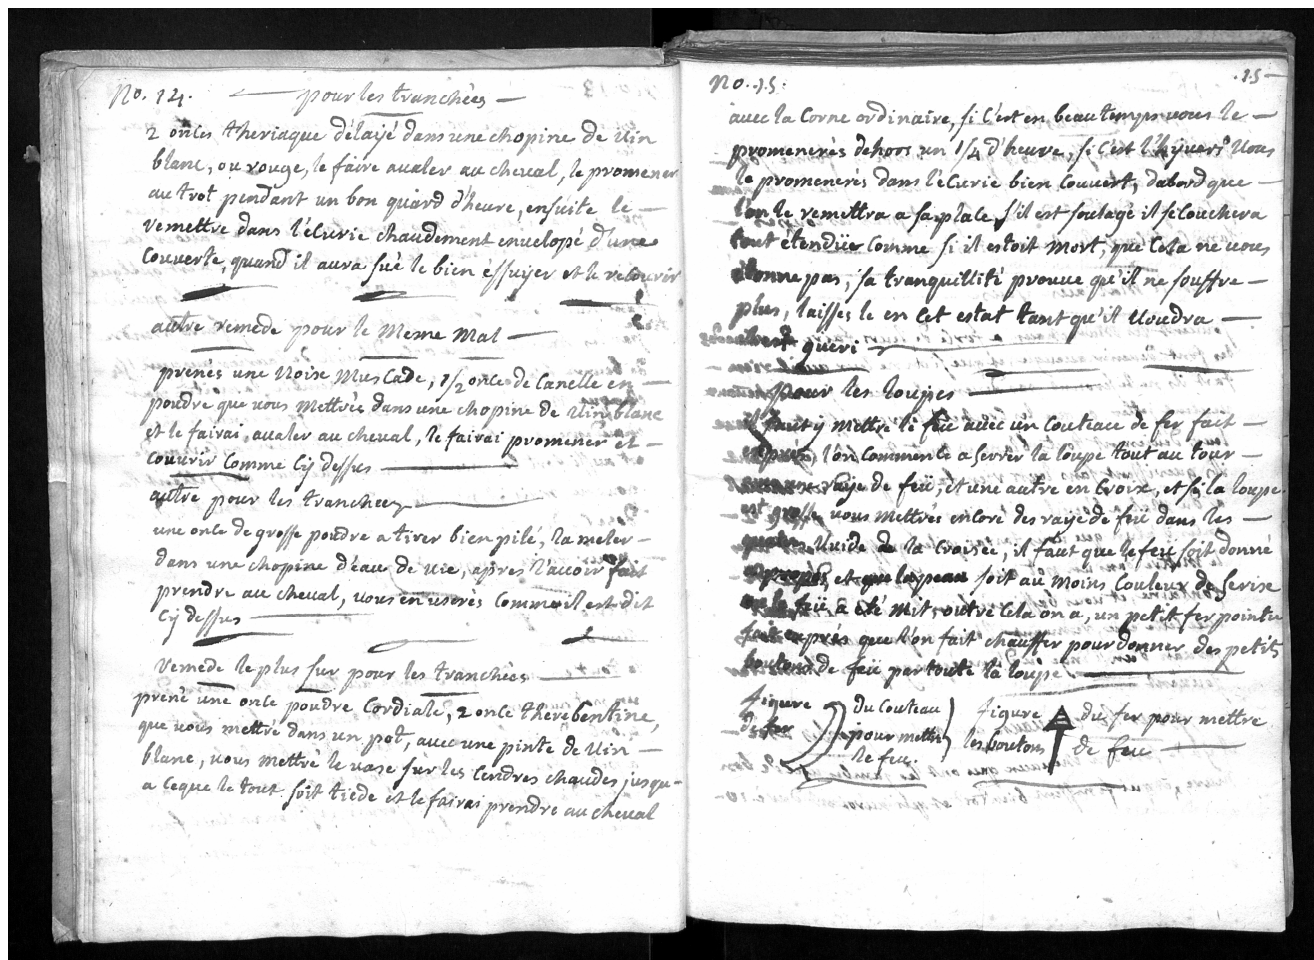 No. 14. pour les tranchées —
2 onces theriaque délayé dans une chopine de uin
blanc, ou rouge, le faire aualer au cheual, le promener
au trot pendant un bon quard d'heure, ensuite le —
remettre dans l'écurie chaudement enuelopé d'une
Couuerte, quand il aura sué le bien éssuyer et le recouurir
autre remede pour le Mesme Mal —
prenés une Noixe MusCade, 1/2 once de Canelle en —
poudre que uous Mettrée dans une chopine de uin blanc
et le fairai, aualer au cheual, le fairai promener et —
couurir Comme Cy dessus —
autre pour les tranchees
une once de grosse poudre a tirer bien pilé, la meler —
dans une chopine d'éau de uie, apres l'auoir fait
prendre au cheual, uous en userés Comme il est dit
Cy dessus —
remede le plus sur pour les tranchées —
prené une once poudre Cordiale, 2 once therebentine,
que uous mettré dans un pot, auec une pinte de uin —
blanc, uous mettré le uase sur les Cendres chaudes jusqu-
a ceque le tout soit tiede et le fairai prendre au cheual
No. 15. 15 —
auec la Corne ordinaire, si C'est en beau temps uous le —
promenerés dehors un 1/4 d'heure, si C'est l'hyuers Uous
le promenerés dans l'éCurie bien Couuert, dabord que —
l'on le remettra a sa place s'il est soulagé il se Couchera
tout étenduë Comme si il estoit Mort, que Cela ne uous
étonne pas, sa tranquillité prouue qu'il ne souffre —
plus, laissés le en Cet estat tant qu'il Uoudra —
queri —
pour les loupes —
il faut y Mettre le feu auec un Couteau de fer fait —
exprés, l'on Commence a Serrer la loupe tout au tour —
auec une raÿe de feü, et une autre en Croix, et si la loupe
est grosse uous Mettrés encoré des raÿe de feü dans les —
quatre Uuide de la Croisée, il faut que le feu soit donné
apropos et que la peau soit au Moins Couleur de Serise
ou le feü a été Mit, outre Cela on a, un petit fer pointu
fait exprés que l'on fait chauffer pour donner des petits
boutons de feu par toute la loupe —
figure du Couteau figure du fer pour mettre
de fer pour mettre les boutons de feu —
le feu.